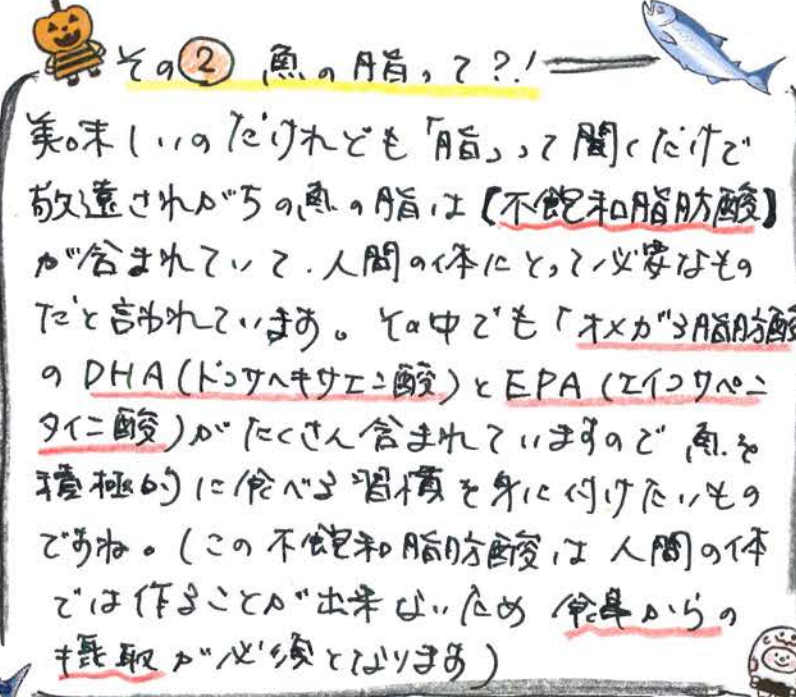 その② 魚の脂って?!
美味しいのだけれども「脂」って聞くだけで
敬遠されがちの魚の脂は【不飽和脂肪酸】
が含まれていて、人間の体にとって必要なもの
だと言われています。その中でも「オメガ3脂肪酸
の DHA(ドコサヘキサエニ酸)と EPA(エイコサペニ
タイニ酸)がたくさん含まれていますので 魚を
積極的に食べる習慣を身に付けたいもの
ですね。(この不飽和脂肪酸は人間の体
では作ることが出来ないため 食事からの
摂取が必須となります)